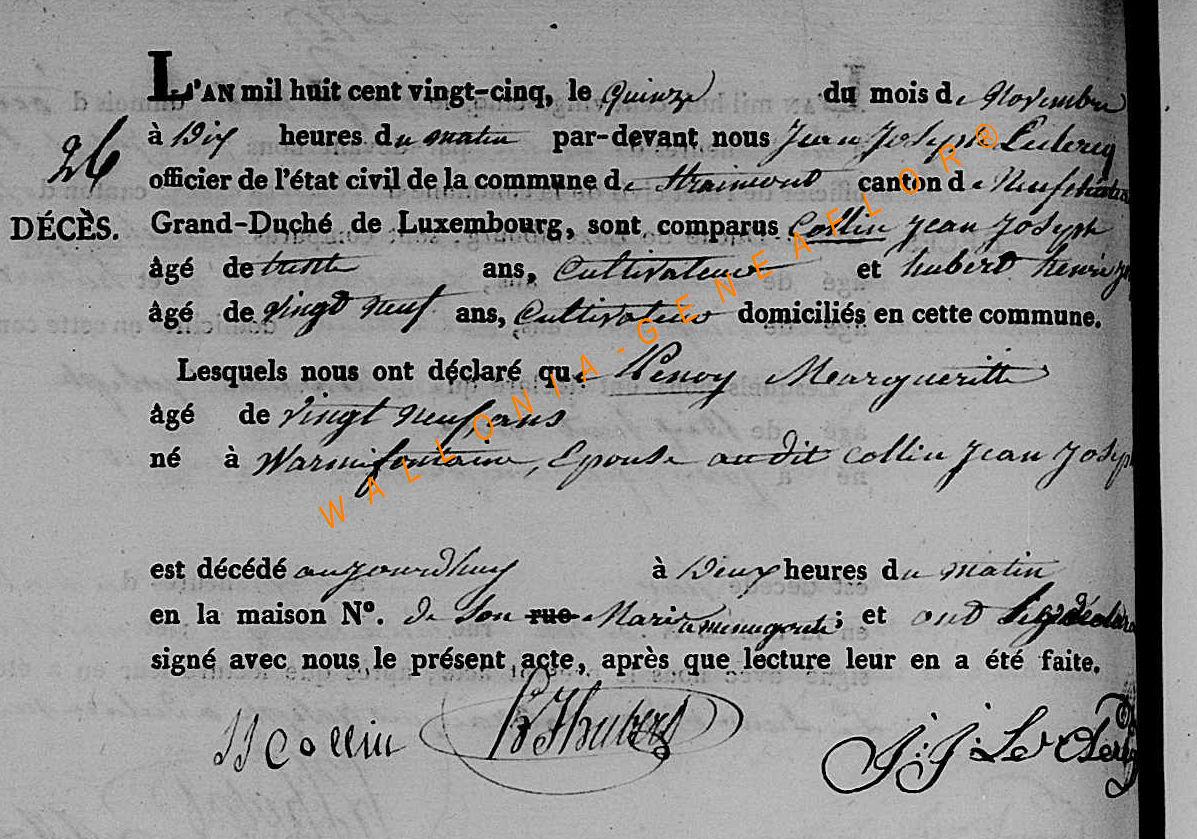 L'AN mil huit cent vingt-cinq, le quinze du mois de Novembre
à Dix heures du matin par-devant nous Jean Joseph Leclercq
26
officier de l'état civil de la commune de Straimont canton de Neufchateau
DÉCÈS. Grand-Duché de Luxembourg, sont comparus Collin Jean Joseph
âgé de trente ans, Cultivateur et hubert henri
âgé de vingt neuf ans, Cultivateur domiciliés en cette commune.
Lesquels nous ont déclaré que Penoy Margueritte
âgé de vingt neuf ans
né à Warmifontaine, Epouse au dit collin Jean Joseph
est décédé aujourdhuy à Deux heures du matin
en la maison N°. de son rue Mari a menugoute; et ont
signé avec nous le présent acte, après que lecture leur en a été faite.
JJ Collin h J hubert J: J: Le Clercq
WALLONIA-GENEAFLOR®